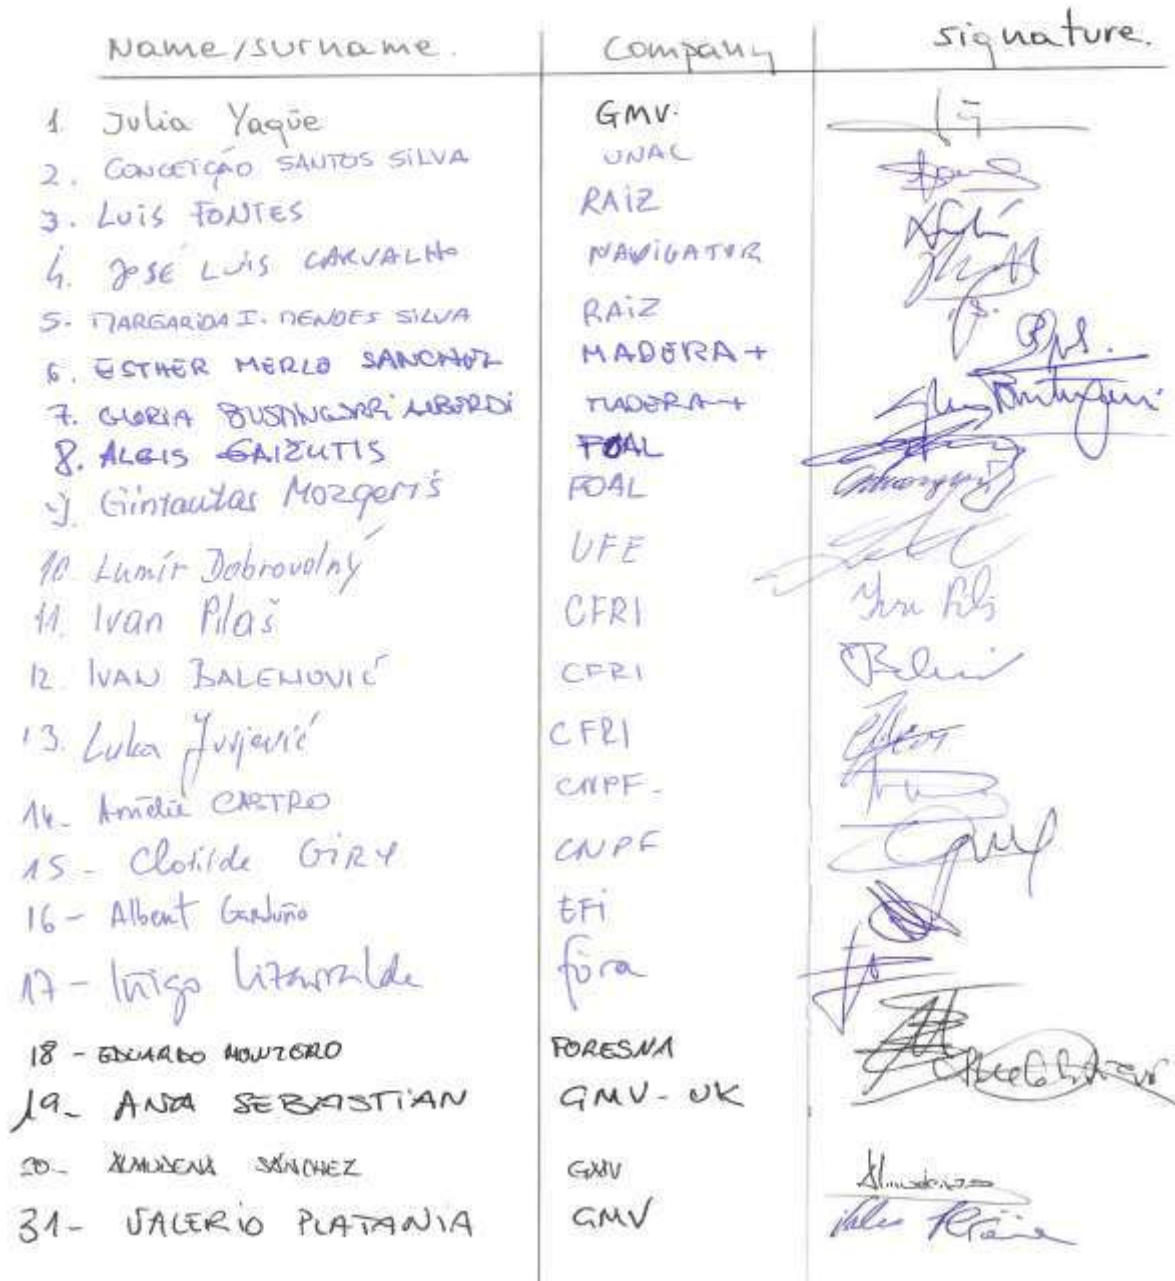 Name/surname. Company signature.
1. Julia Yagüe GMV.
2. CONCEIÇÃO SANTOS SILVA UNAC
3. Luis FONTES RAIZ
4. JOSÉ LUIS CARVALHO NAVIGATOR
5- MARGARIDA I. MENDES SILVA RAIZ
6. ESTHER MERLO SANCHEZ MADERA+
7. GLORIA MADERA+
8. ALGIS GAIŽUTIS FOAL
9. Gintautas Mozgeris FOAL
10. Lumír Dobrovolný UFE
11. Ivan Pilaš CFRI
12. IVAN BALENOVIĆ CFRI
13. Luka Jurjević CFRI
14- Amélie CASTRO CNPF-
15- Clotilde GIRY CNPF
16- Albert Garduño EFI
17- Iñigo Lizarralde föra
18- EDUARDO MONTERO FORESNA
19- ANA SEBASTIAN GMV-UK
20- ALMUDENA SÁNCHEZ GMV
31- VALERIO PLATANIA GMV